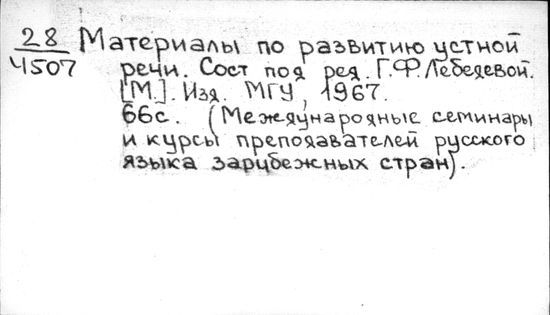 28 Материалы по развитию устной
4507 речи. Сост под ред. Г.Ф. Лебедевой.
[М.]. Изд. МГУ, 1967.
66с. (Международные семинары
и курсы преподавателей русского
языка зарубежных стран).